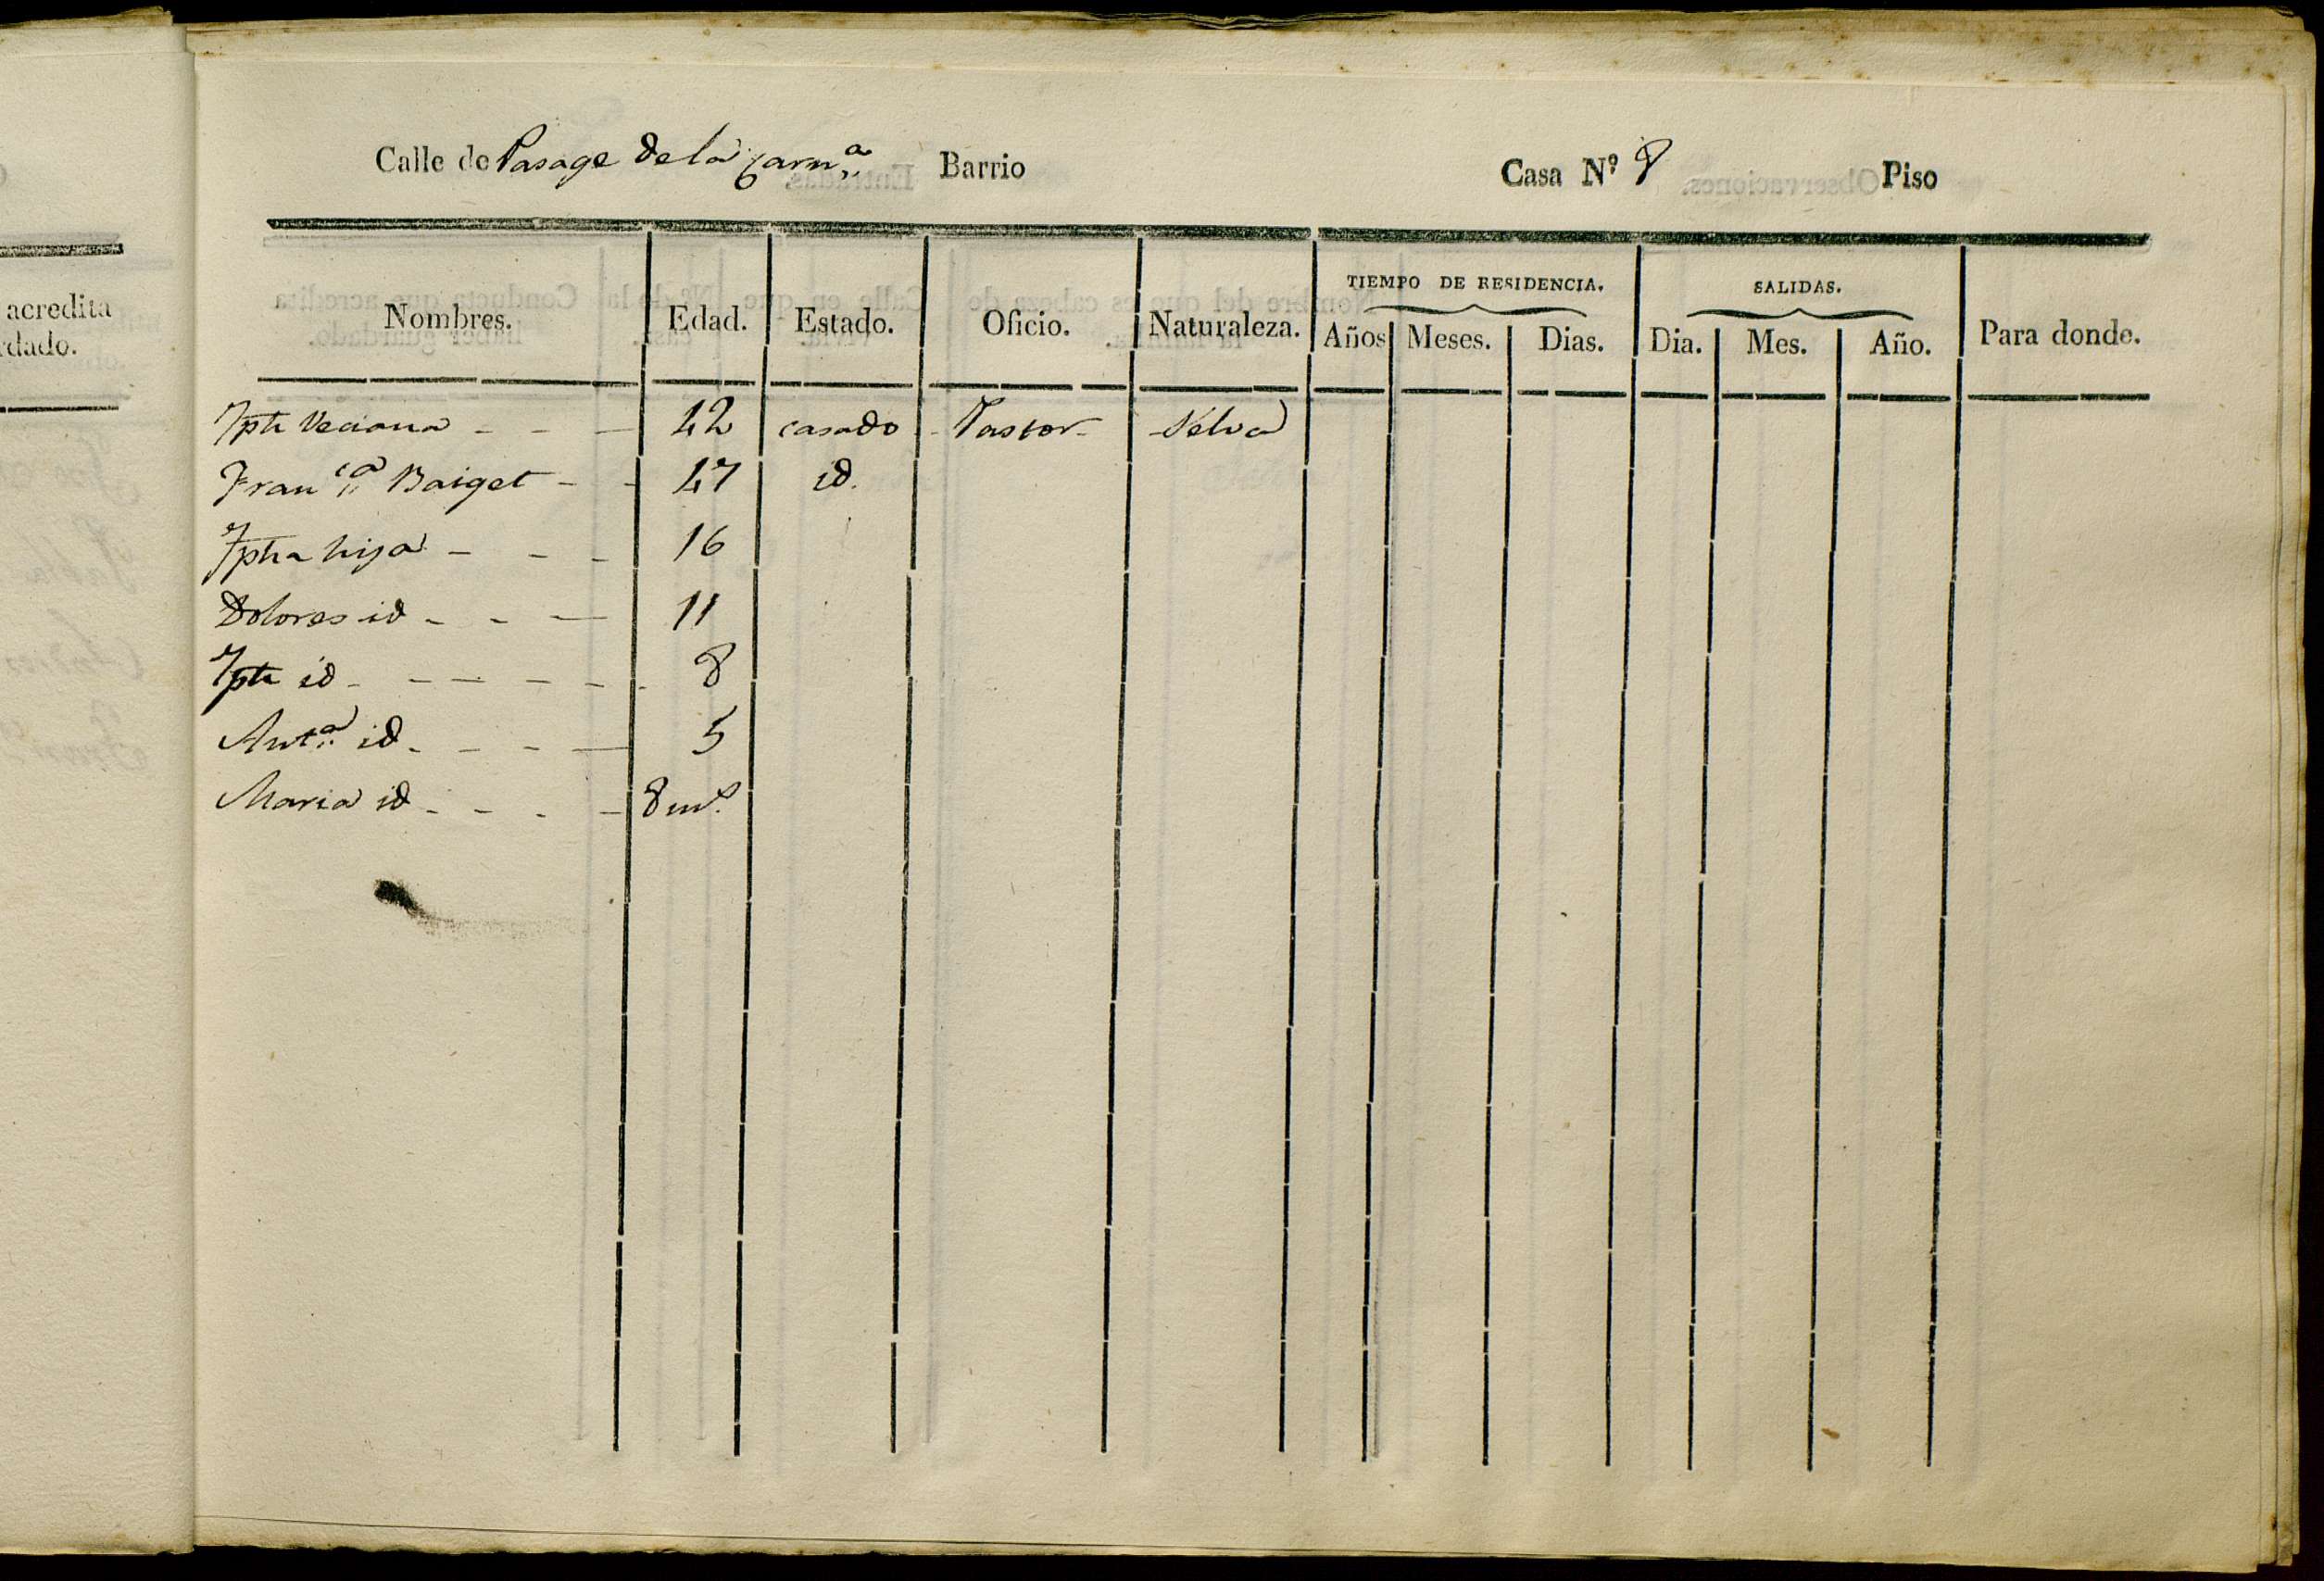 Calle de Pasage de la Carn.ª Barrio Casa Nº 8 Piso
acredita
rdado.
Nombres. Edad. Estado. Oficio. Naturaleza. TIEMPO DE RESIDENCIA. Años Meses. Dias. SALIDAS. Dia. Mes. Año. Para donde.
Jph Veciana - - - 42 casado Pastor Selva
Franᶜª Baiget - - 47 id.
Jpha hija - - - 16
Dolores id - - - 11
Jph id - - - - - - 8
Antª id - - - - 5
Maria id - - - - 8 mˢ